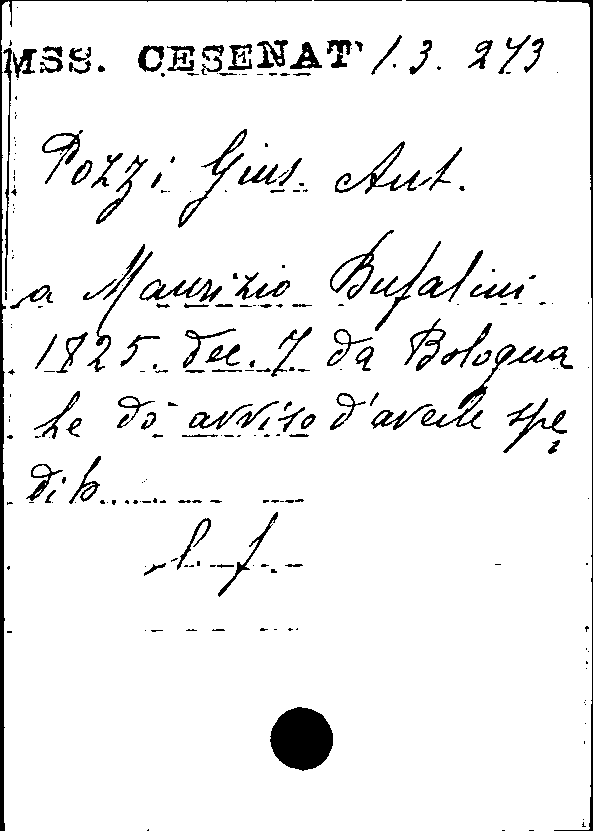 MSS. CESENAT 1. 3. 273
Pozzi Gius. Ant.
a Maurizio Bufalini
1825. dec. 7 da Bologna
Le dò avviso d'averle spe
dito......
l. f.